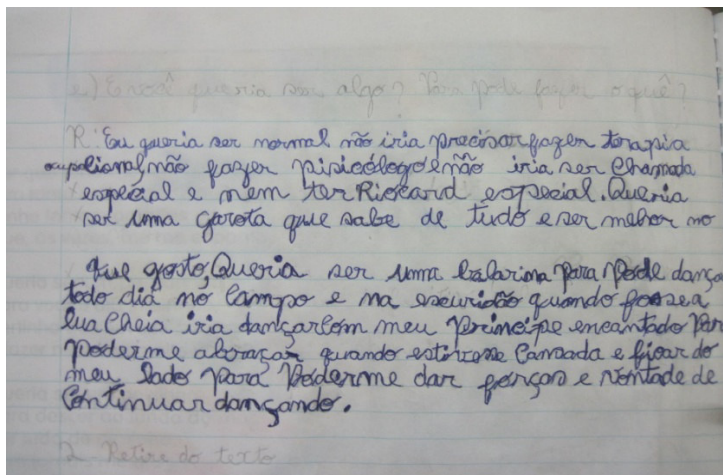 e) E você queria ser algo? Para pode fazer o quê?
R: Eu queria ser normal não iria precisar fazer terapia
ocupalional, não fazer pisicólogo e não iria ser chamada
especial e nem ter Riocard especial. Queria
ser uma garota que sabe de tudo e ser melhor no
que gosto, Queria ser uma balarina para pode dança
todo dia no campo e na escuridão quando fosse a
lua cheia iria dançar com meu principe encantado Par
poderme abraçar quando estivesse cansada e ficar do
meu lado para poderme dar forças e vontade de
continuar dançando.
2. Retire do texto